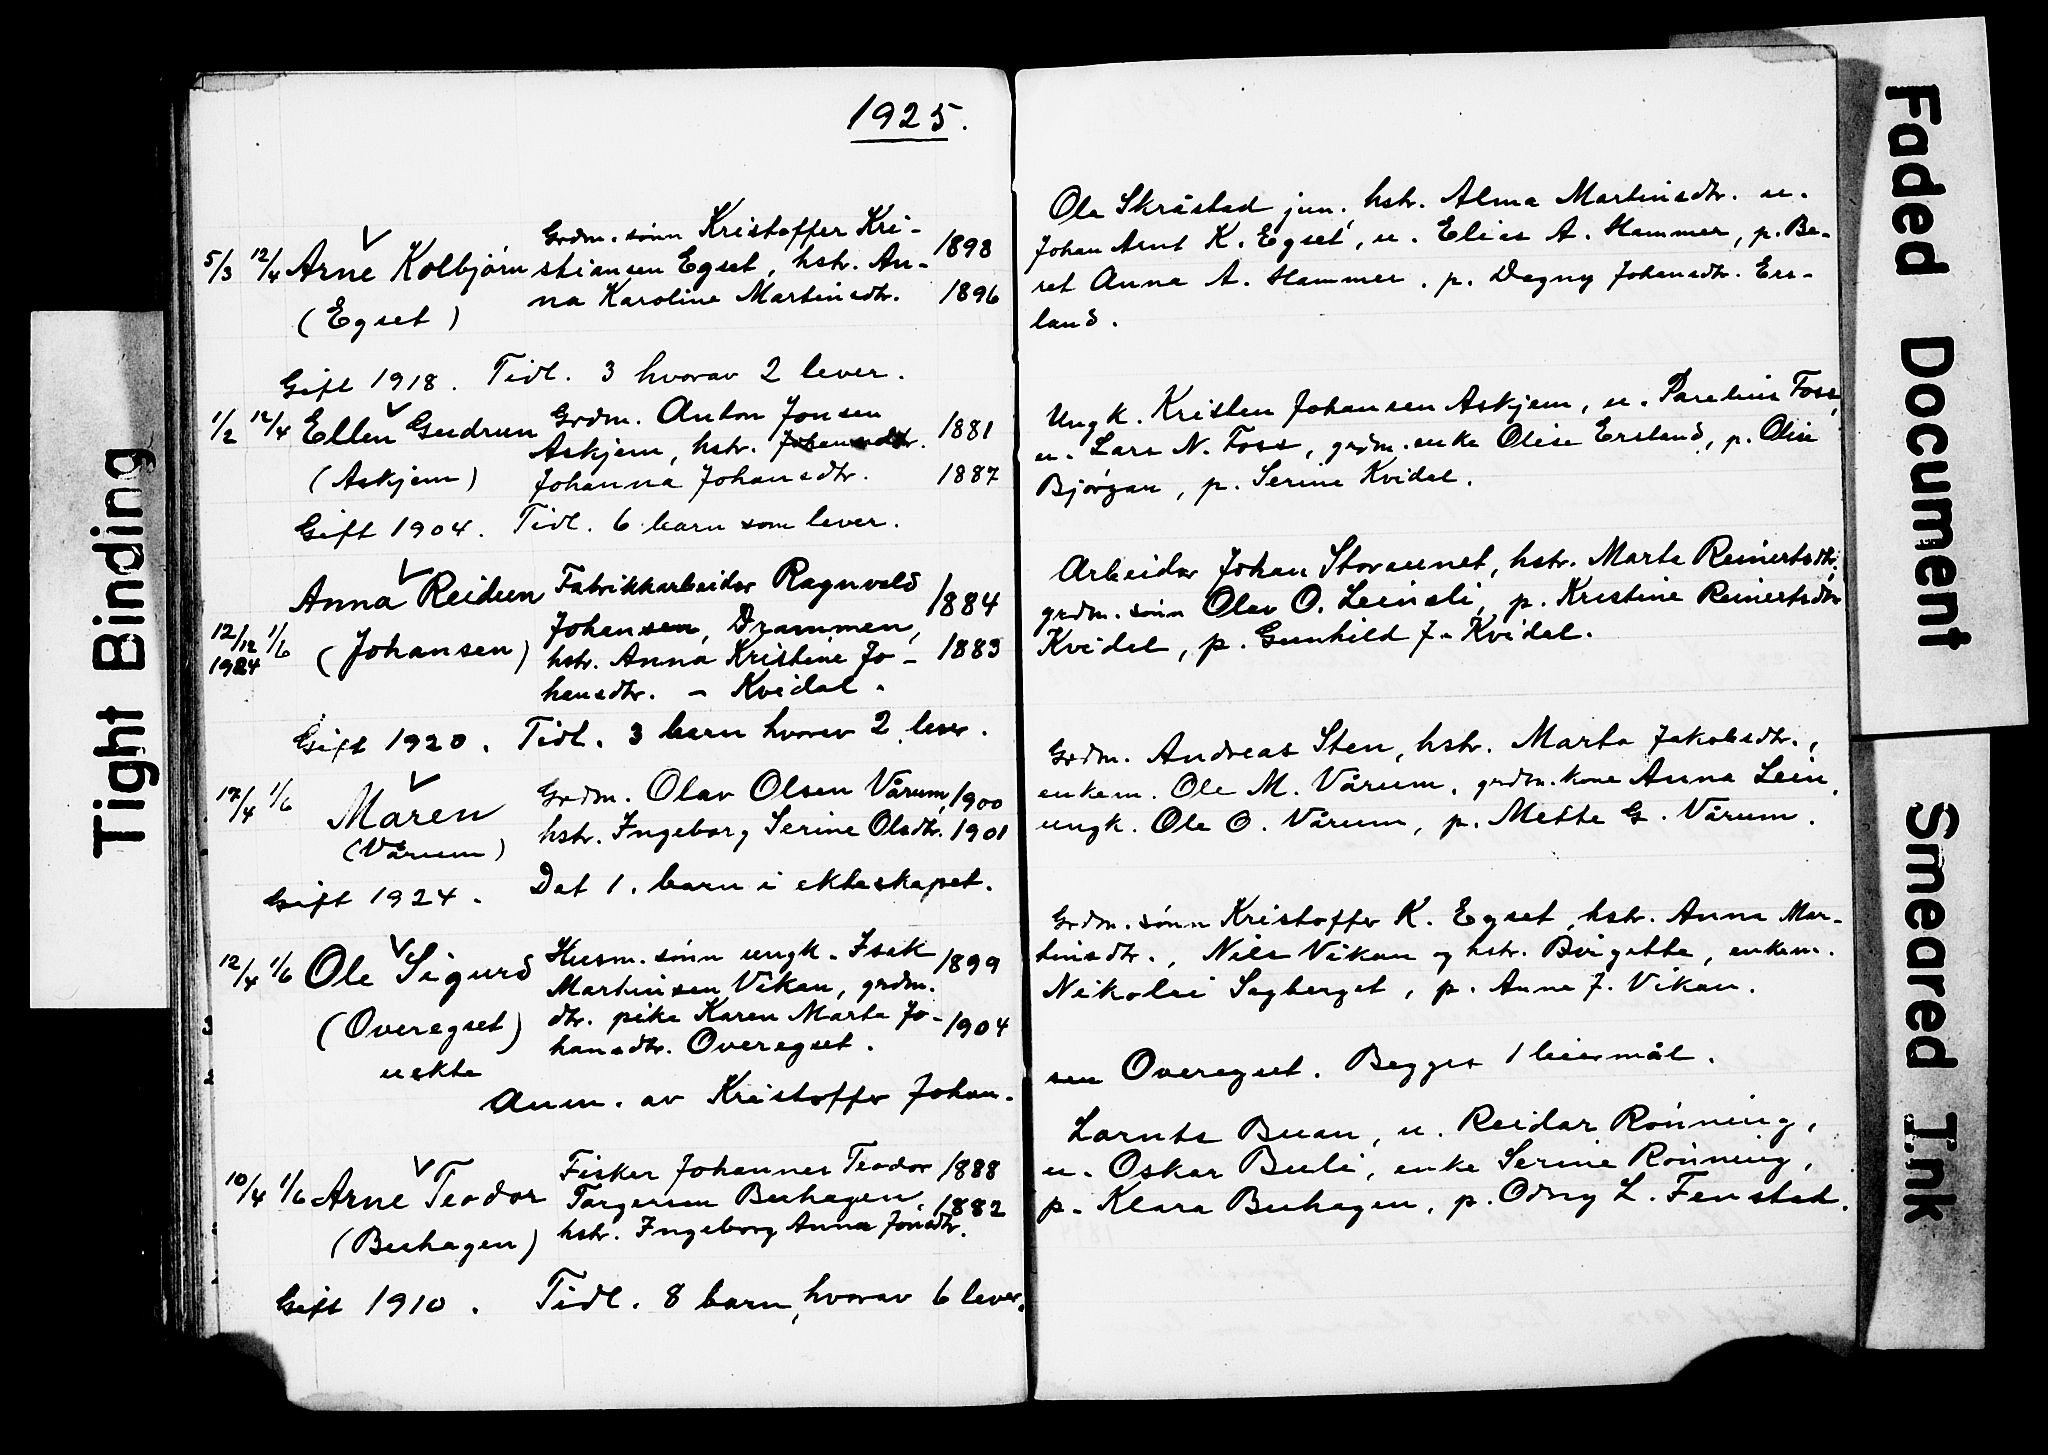 1925.
5/3 12/4 Arne Kolbjørn
(Egset)
Grdm. sønn Kristoffer Kri-
stiansen Egset, hstr. An-
na Karoline Martinsdtr.
1898
1896
Gift 1918. Tidl. 3 hvorav 2 lever.
1/2 12/4 Ellen Gudrun
(Askjem)
Grdm. Anton Jonsen
Askjem, hstr. Johansdtr.
Johanna Johansdtr.
1881
1887
Gift 1904. Tidl. 6 barn som lever.
12/12 1924 1/6 Anna Reidun
(Johansen)
Fabrikkarbeider Ragnvald
Johansen, Drammen,
hstr. Anna Kristine Jo-
hansdtr. - Kvidal.
1884
1883
Gift 1920. Tidl. 3 barn hvorav 2 lever.
17/4 1/6 Maren
(Vårum)
Grdm. Olav Olsen Vårum, 1900
hstr. Ingeborg Serine Olsdtr. 1901
Gift 1924. Det 1. barn i ekteskapet.
12/4 1/6 Ole Sigurd
(Overegset)
uekte
Husm. sønn ungk. Isak
Martinsen Vikan, grdm.
dtr. pike Karen Marta Jo-
hansdtr. Overegset.
1899
1904
Anm. av Kristoffer Johan-
10/4 1/6 Arne Teodor
(Buhagen)
Fisker Johannes Teodor 1888
Torgersen Buhagen, 1882
hstr. Ingeborg Anna Jonsdtr.
Gift 1910. Tidl. 8 barn, hvorav 6 lever.
Ole Skråstad jun., hstr. Alma Martinsdtr. u.
Johan Arnt K. Egset, u. Elias A. Hammer, p. Be-
ret Anna A. Hammer, p. Dagny Johansdtr. Ers-
land.
Ungk. Kristen Johansen Askjem, u. Parelius Foss,
u. Lars N. Foss, grdm. enke Olise Ersland, p. Olise
Bjørgan, p. Serine Kvidal.
Arbeider Johan Storaunet, hstr. Marta Reinertsdtr.,
grdm. sønn Olav O. Leinsli, p. Kristine Reinertsdtr.
Kvidal, p. Gunhild J. Kvidal.
Grdm. Andreas Sten, hstr. Marta Jakobsdtr.,
enkem. Ole M. Vårum, grdm. kone Anna Lein,
ungk. Ole O. Vårum, p. Mette G. Vårum.
Grdm. sønn Kristoffer K. Egset, hstr. Anna Mar-
tinsdtr., Nils Vikan og hstr. Birgitte, enkem.
Nikolai Sagberget, p. Anna J. Vikan.
sen Overegset. Begges 1 leiermål.
Larnts Buan, u. Reidar Rønning,
u. Oskar Buli, enke Serine Rønning,
p. Klara Buhagen, p. Odny L. Fenstad.
Tight Binding
Faded Document
Smeared Ink